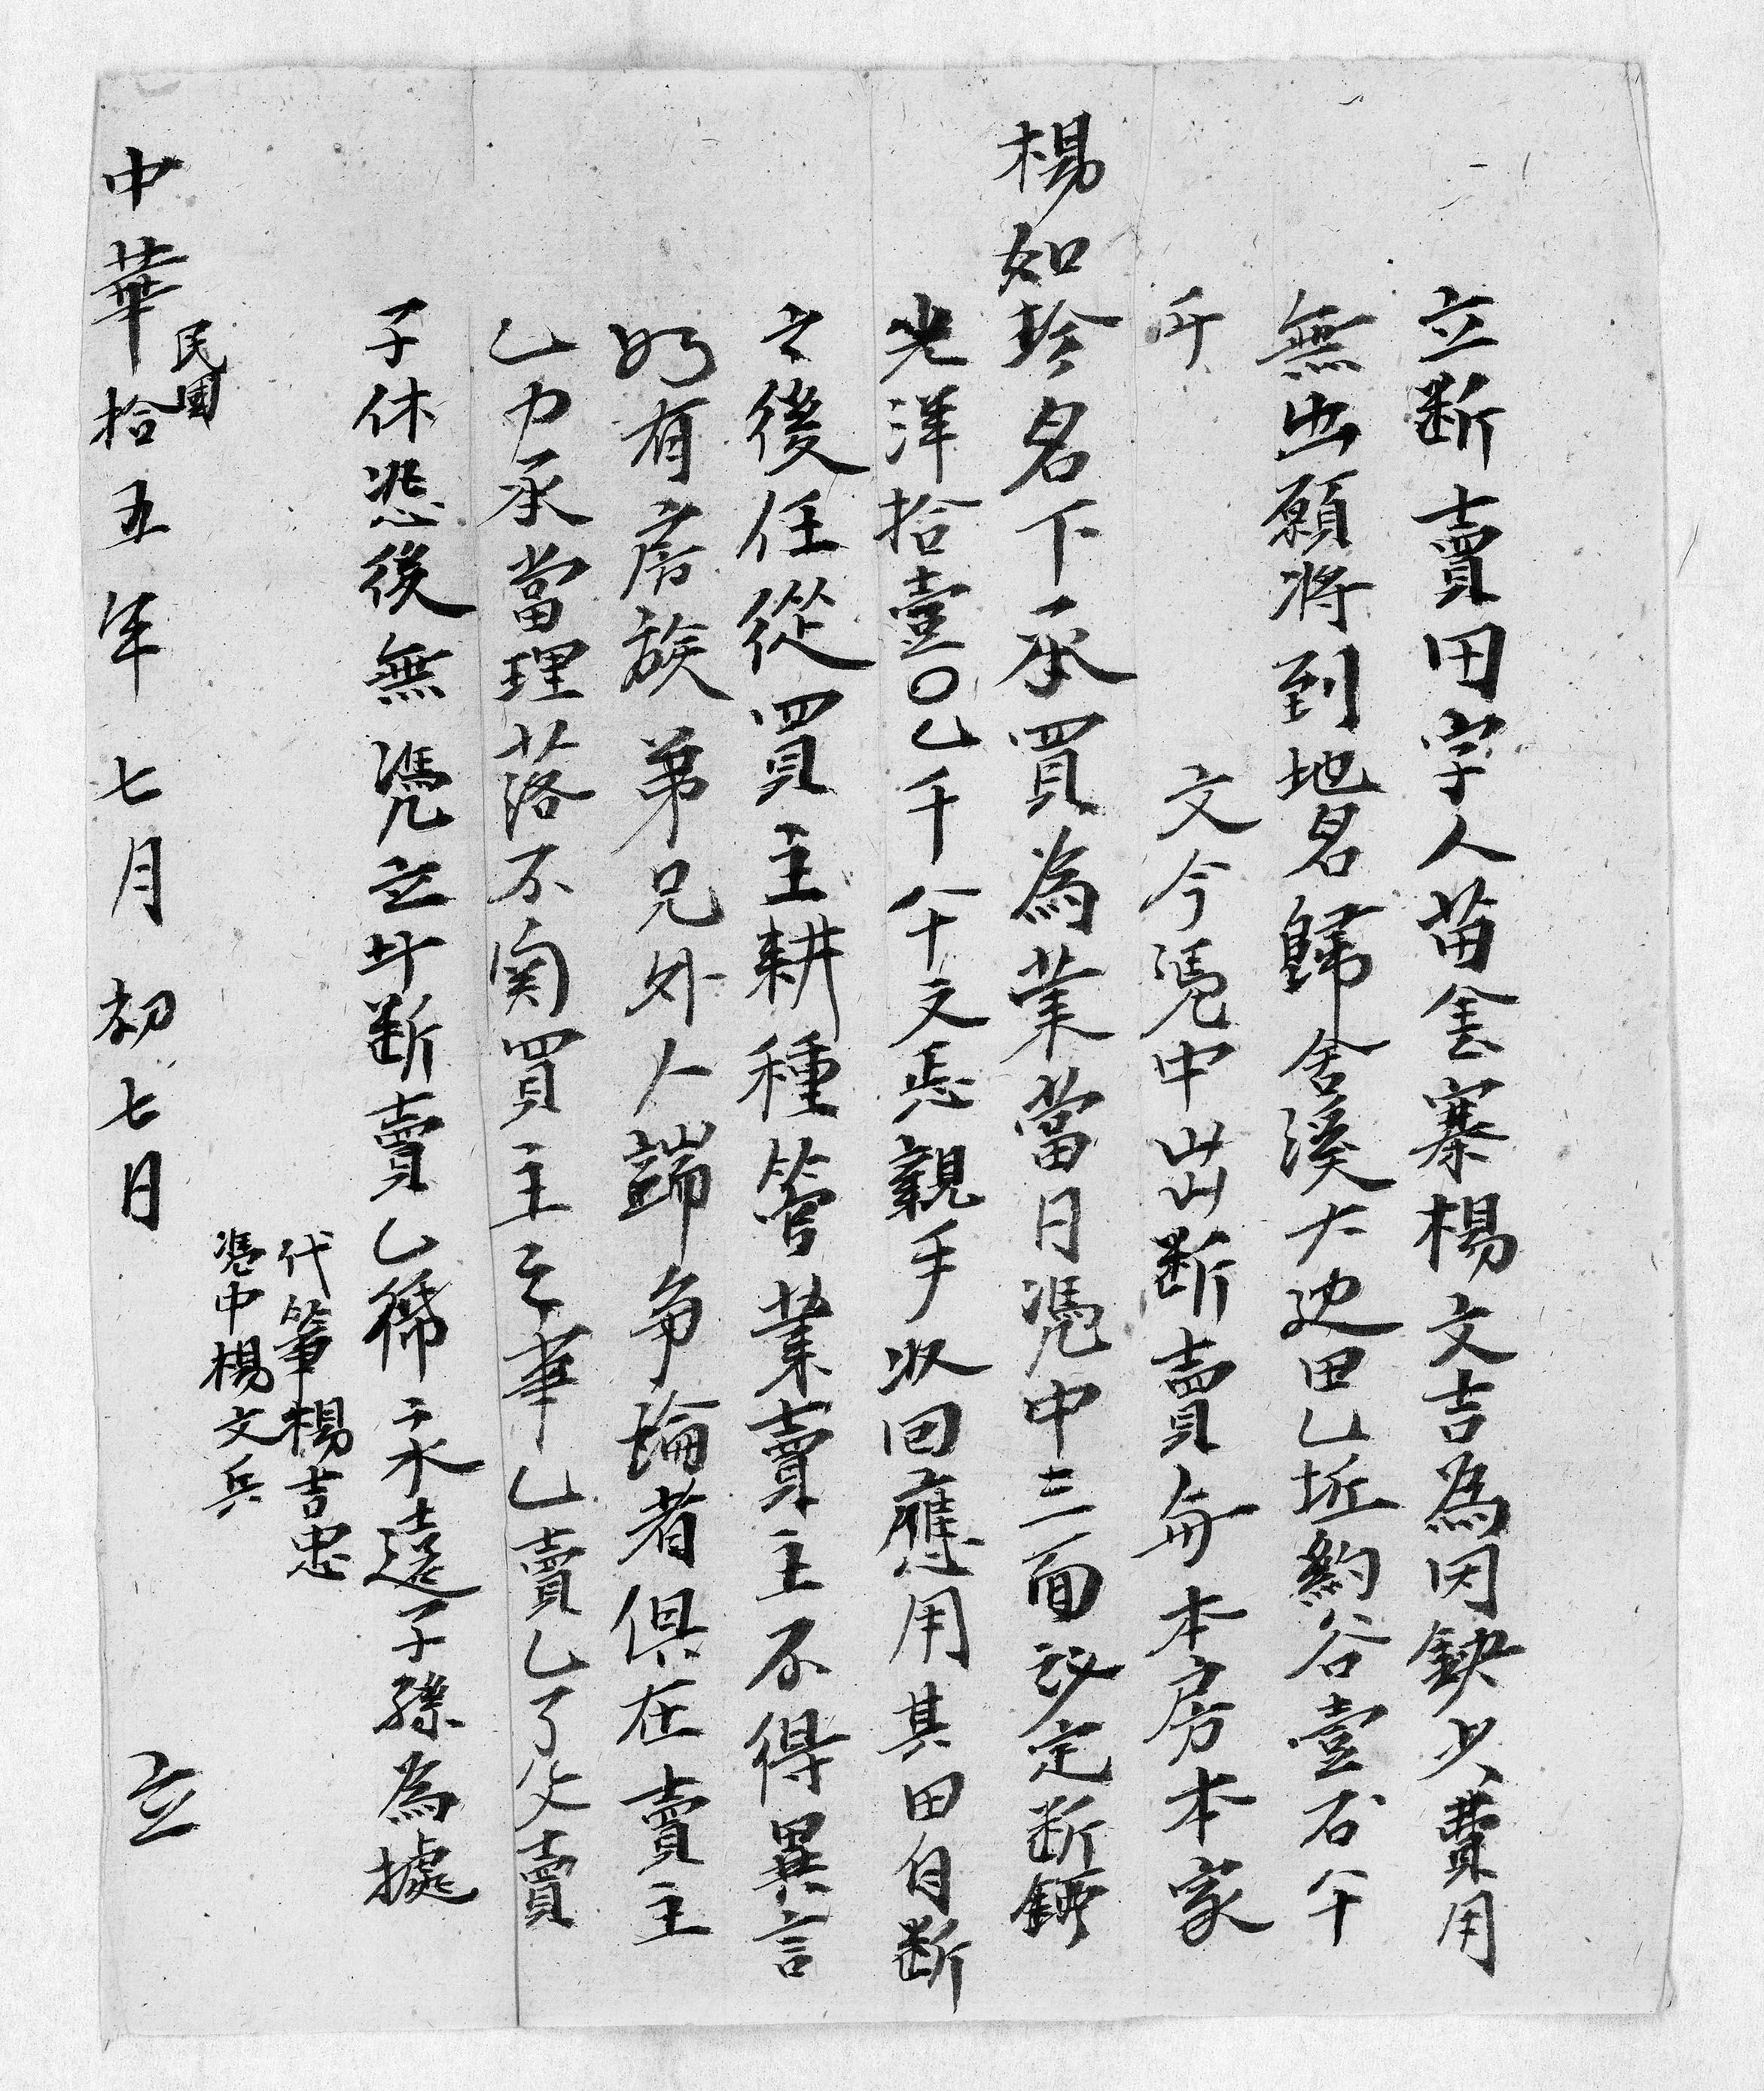 立断賣田字人苗金寨楊文吉為因缺少費用
無出願將到地名歸舍溪大边田乙坵約谷壹石八十
斤　　　文今憑中出断賣与本房本家
楊如珍名下承買為業當日憑中三面议定断價
光洋拾壹〇乙千八十文恁親手收回應用其田自断
之後任從買主耕種管業賣主不得異言
如有房族弟兄外人端争論者俱在賣主
乙力承當理落不関買主之事乙賣乙了父賣
子休恐後無憑立此断賣乙紙永遠子孫為據
代筆楊吉忠
憑中楊文兵
中華民國拾五年七月初七日　立